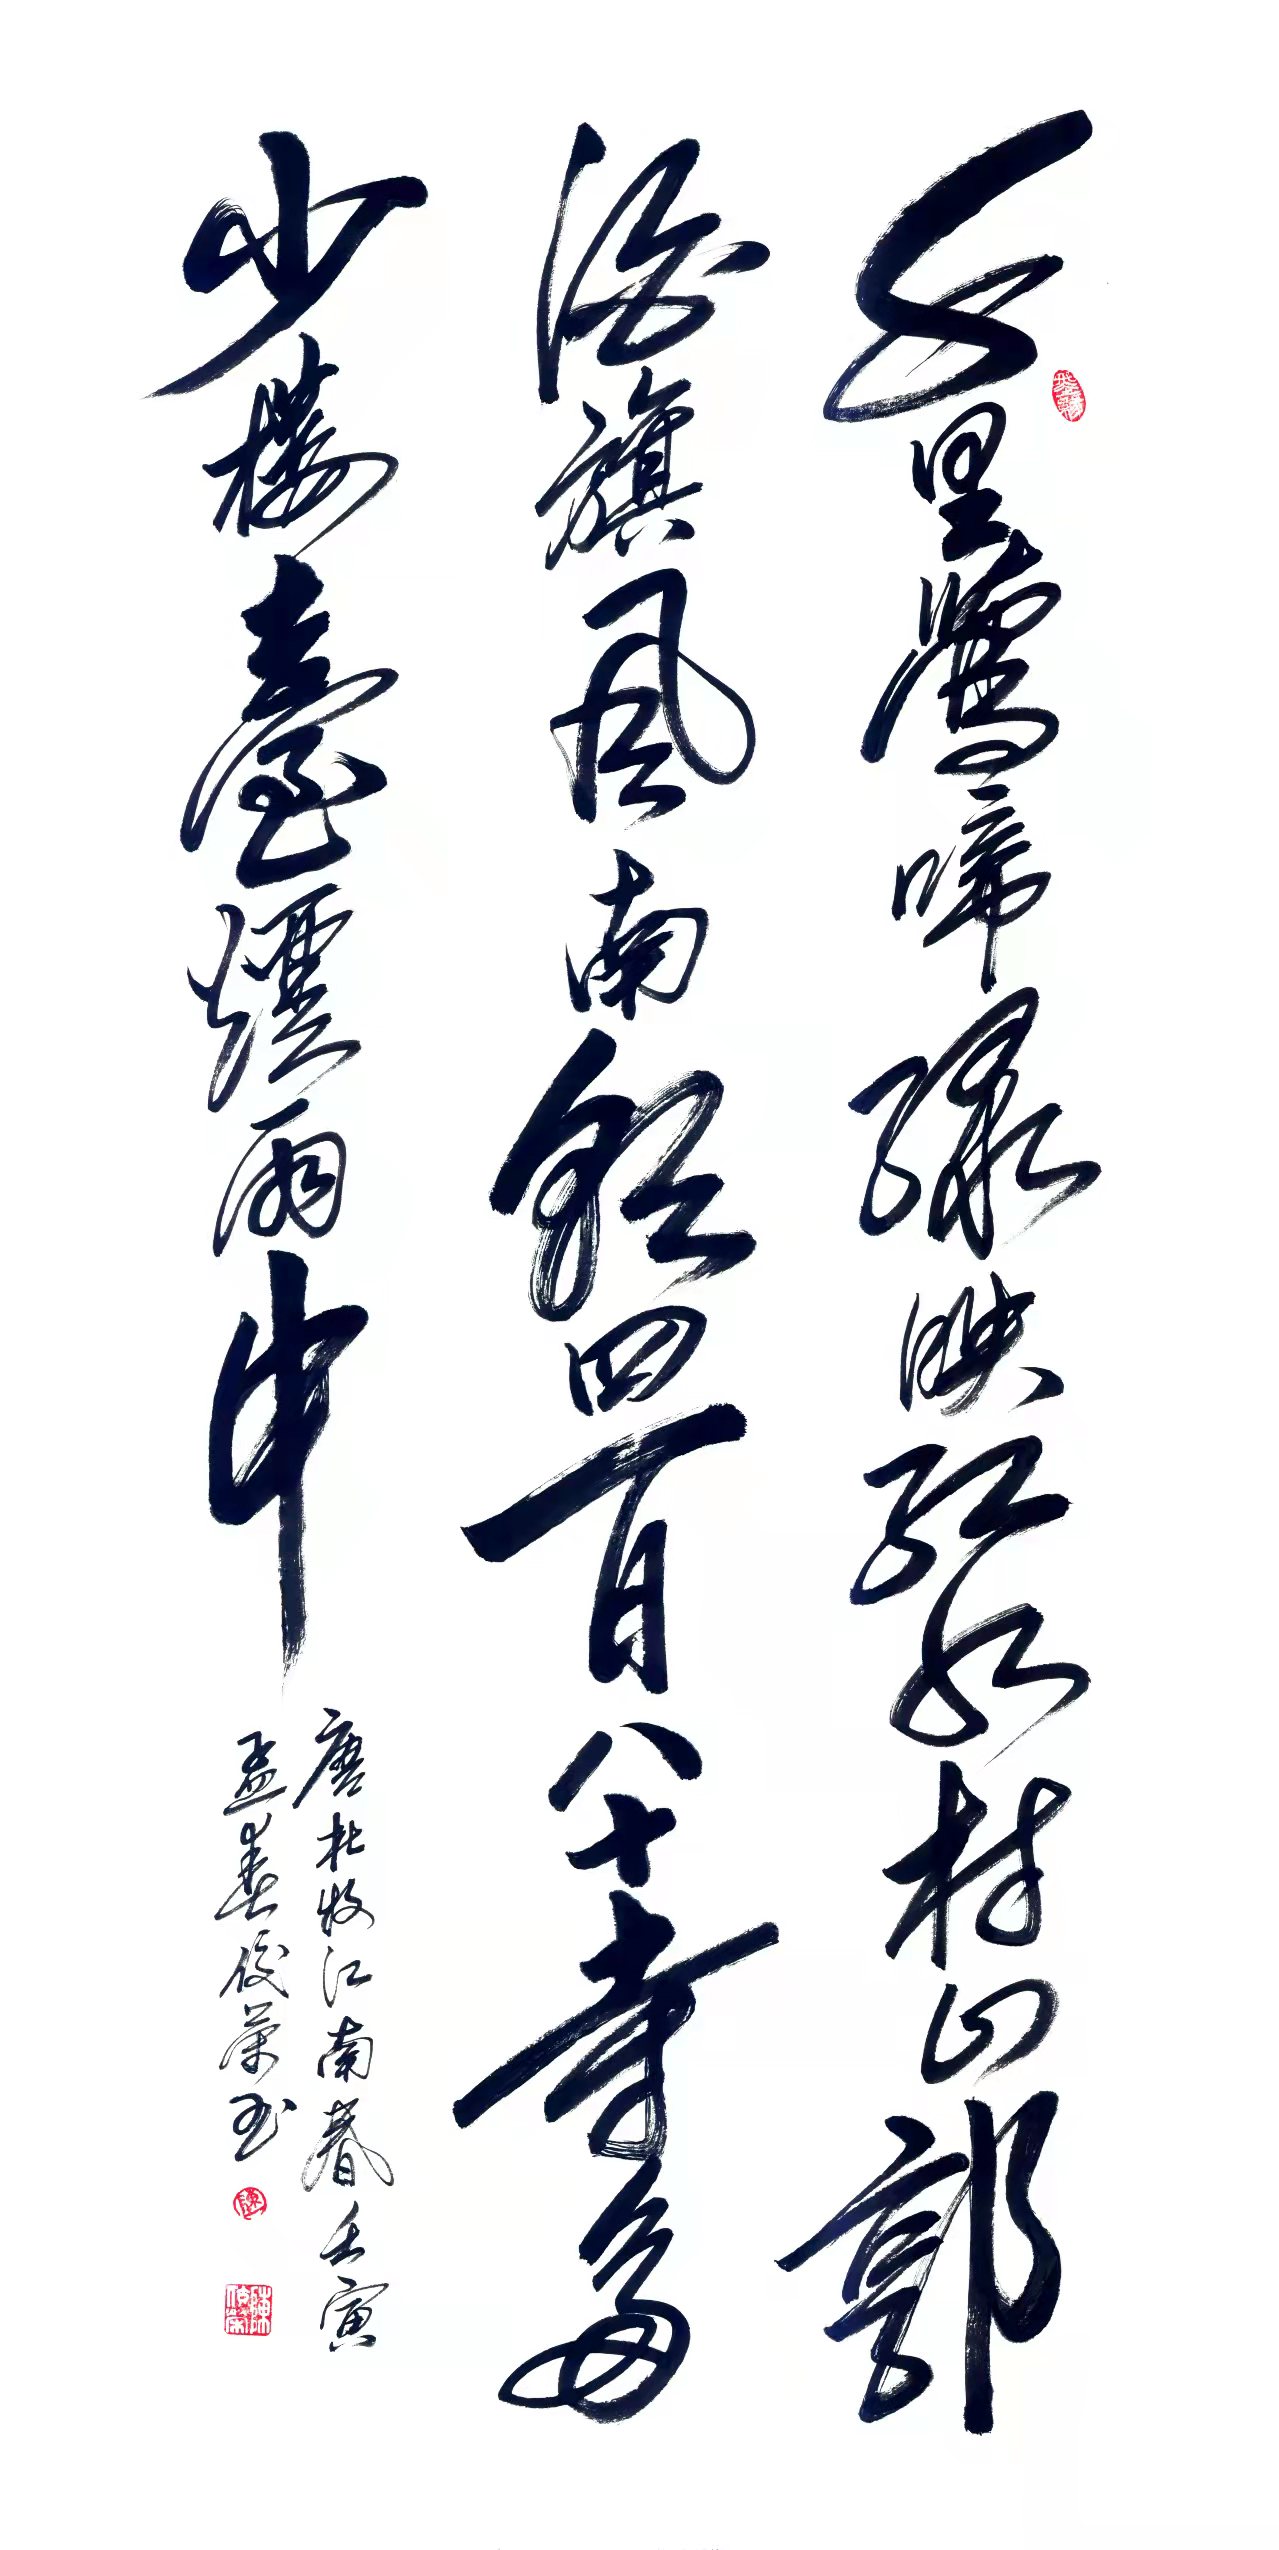 千里鶯啼綠映紅水村山郭
酒旗風南朝四百八十寺多
少樓臺煙雨中
唐杜牧江南春壬寅
孟春俊榮
陳